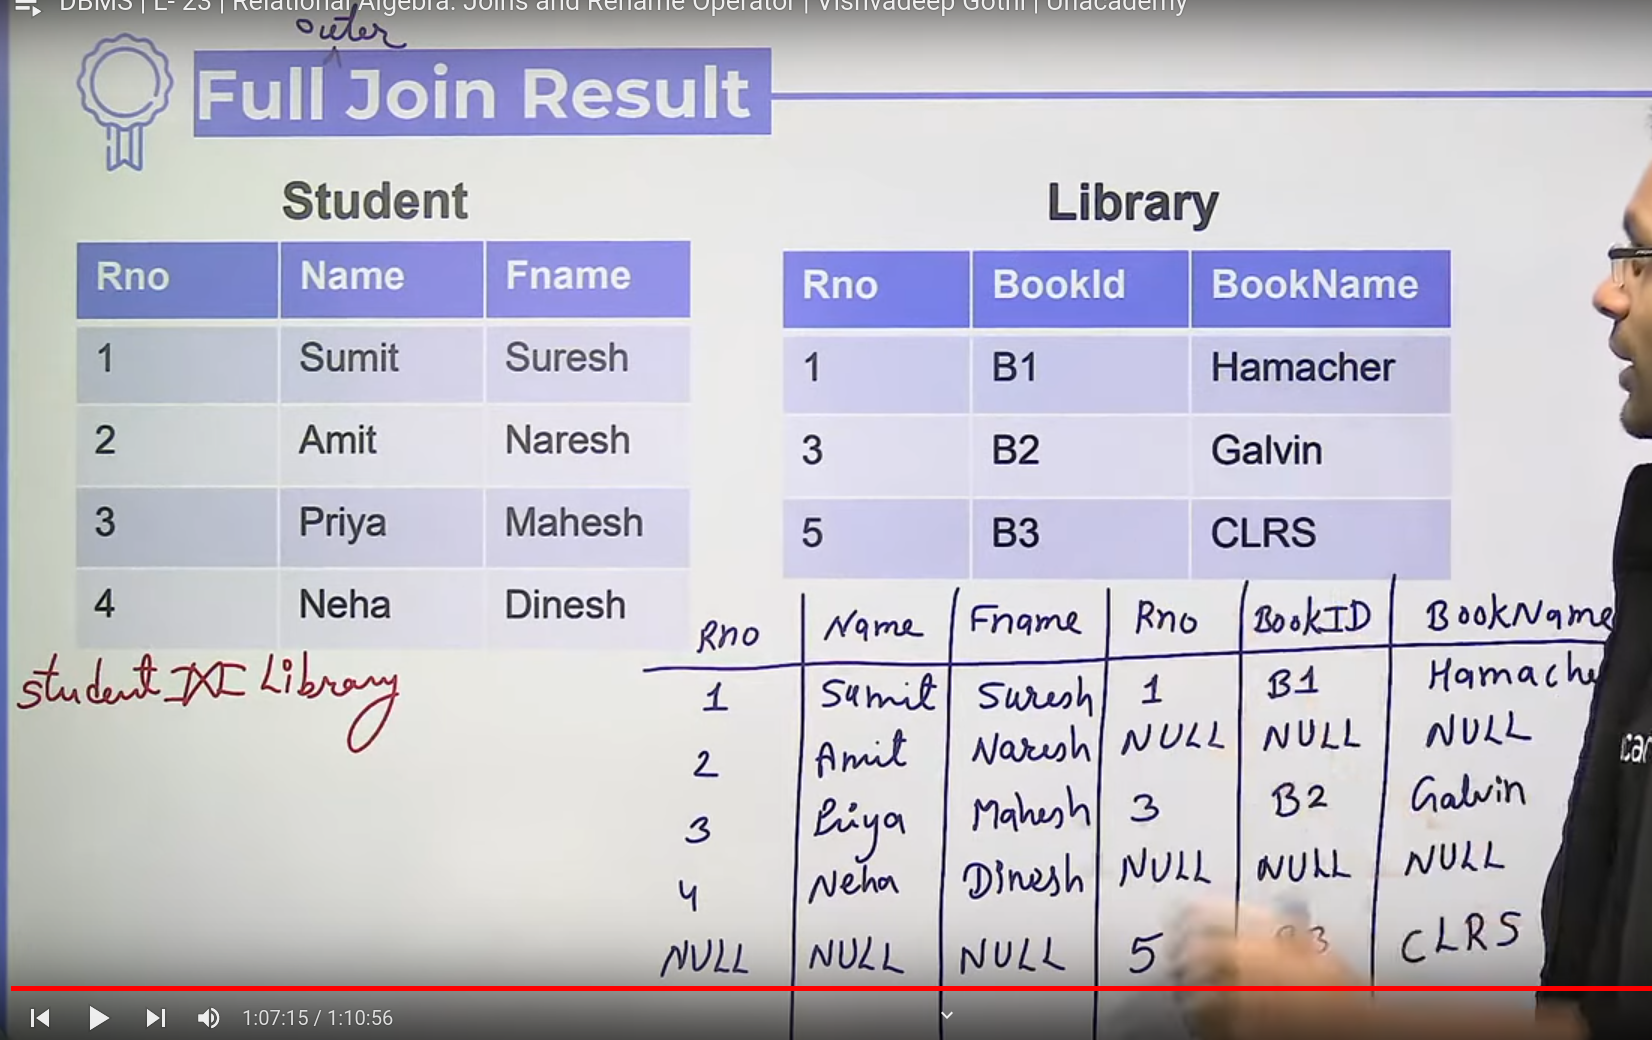 DBMS | L- 23 | Relational Algebra: Joins and Rename Operator | Vishvadeep Gothi | Unacademy
outer
Full Join Result
Student
Rno Name Fname
1 Sumit Suresh
2 Amit Naresh
3 Priya Mahesh
4 Neha Dinesh
Library
Rno BookId BookName
1 B1 Hamacher
3 B2 Galvin
5 B3 CLRS
Student ⟗ Library
Rno Name Fname Rno BookID BookName
1 Sumit Suresh 1 B1 Hamache
2 Amit Naresh NULL NULL NULL
3 Priya Mahesh 3 B2 Galvin
4 Neha Dinesh NULL NULL NULL
NULL NULL NULL 5 B3 CLRS
1:07:15 / 1:10:56